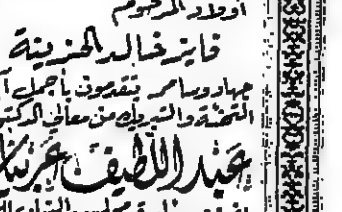 أولاد المرحوم
فايز خالد الخزينة
جهاد وسامر يتقدمون بأجمل
التهنئة والتبريك من معالي الدكتور
عبد اللطيف عربيات